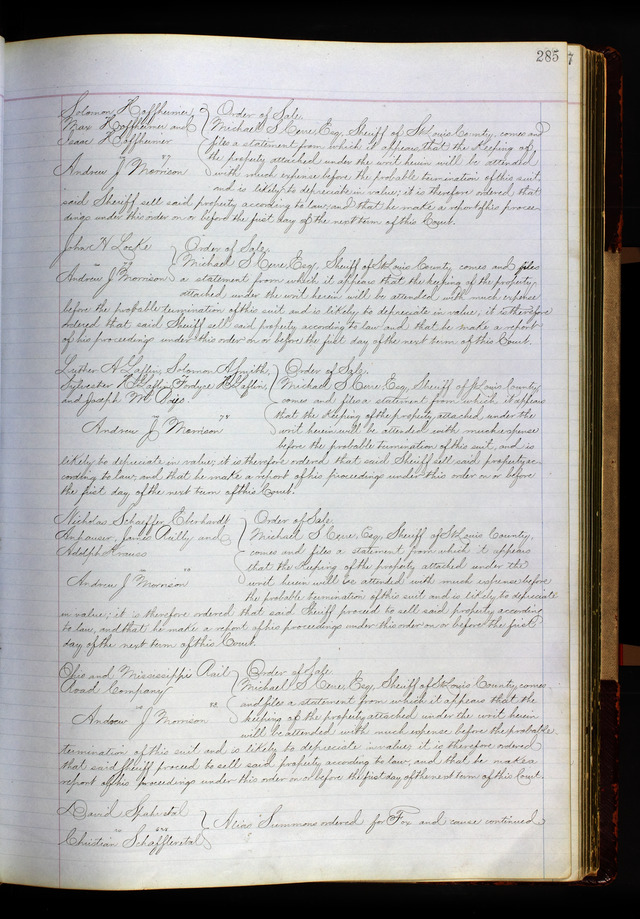 285
7
Solomon Hoffheimer } Order of Sale.
Max Hoffheimer and Michael S Cerre, Esq, Sheriff of St Louis County, comes and
Isaac Hoffheimer files a statement from which it appears that the Keeping of
the property attached under the writ herein will be attended
Andrew J Morrison with much expense before the probable termination of this suit
and is likely to depreciate in value; it is therefore ordered that
said Sheriff sell said property according to law, and that he make a report of his procee-
dings under this order on or before the first day of the next term of this Court.
John N Locke } Order of Sale.
Michael S Cerre, Esq, Sheriff of St Louis County comes and files
Andrew J Morrison a statement from which it appears that the keeping of the property
attached under the writ herein will be attended with much expense
before the probable termination of this suit and is likely to depreciate in value, it is therefore
ordered that said Sheriff sell said property according to law and that he make a report
of his proceedings under this order on or before the first day of the next term of this Court.
Luther A Laflin, Solomon A Smith, } Order of Sale.
Sylvester H Laflin, Fordyce H Laflin, Michael S Cerre Esq, Sheriff of St Louis County
and Joseph M comes and files a statement from which it appears
that the Keeping of the property attached under the
Andrew J Morrison writ herein will be attended with much expense
before the probable termination of this suit, and is
likely to depreciate in value; it is therefore ordered that said Sheriff sell said property ac-
cording to law, and that he make a report of his proceedings under this order on or before
the first day of the next term of this Court.
Nicholas Schaeffer, Eberhardt } Order of Sale.
Anpauser, James Reilly and Michael S Cerre, Esq, Sheriff of St Louis County,
Adolph Krauss comes and files a statement from which it appears
that the Keeping of the property attached under the
Andrew J Morrison writ herein will be attended with much expense before
the probable termination of this suit and is likely to depreciate
in value; it is therefore ordered that said Sheriff proceed to sell said property according
to law, and that he make a report of his proceedings under this order on or before the first
day of the next term of this Court.
Ohio and Mississippi Rail } Order of Sale
Road Company Michael S Cerre, Esq, Sheriff of St Louis County, comes
and files a statement from which it appears that the
Andrew J Morrison keeping of the property attached under the writ herein
will be attended with much expense before the probable
termination of this suit and is likely to depreciate in value; it is therefore ordered
that said Sheriff proceed to sell said property according to law, and that he make a
report of his proceedings under this order on or before the first day of the next term of this Court.
David
} Alias Summons ordered for Fox and cause continued
Christian